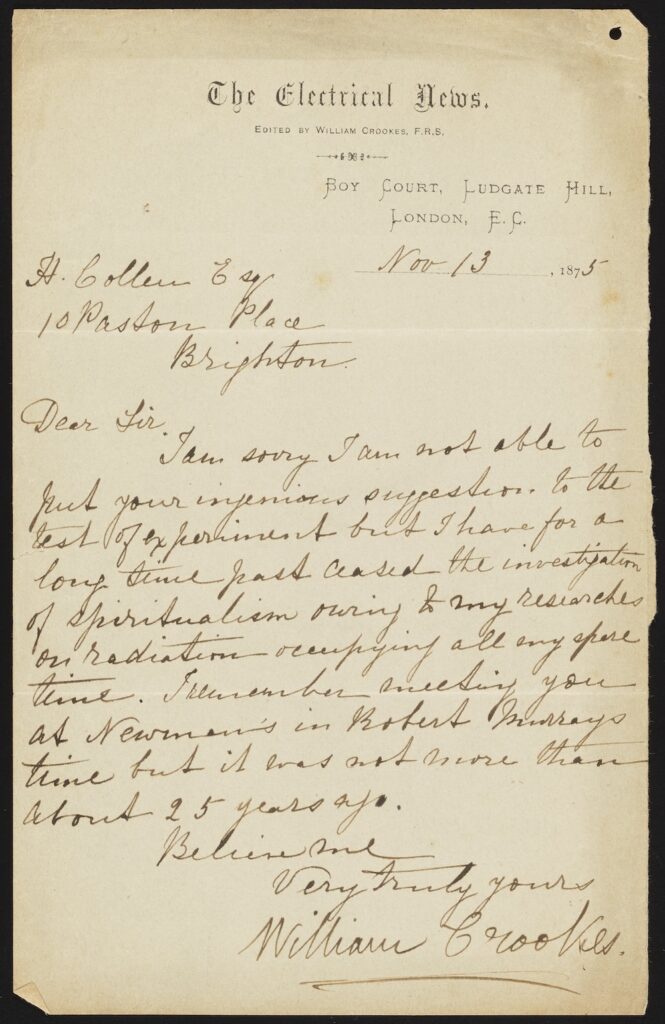 The Electrical News.
EDITED BY WILLIAM CROOKES, F.R.S.
BOY COURT, LUDGATE HILL,
LONDON, E.C.
Nov 13, 1875
H. Collen Esq
10 Paston Place
Brighton.
Dear Sir
I am sorry I am not able to
put your ingenious suggestion to the
test of experiment but I have for a
long time past ceased the investigation
of spiritualism owing to my researches
on radiation occupying all my spare
time. I remember meeting you
at Newman's in Robert Murrays
time but it was not more than
about 25 years ago.
Believe me
Very truly yours
William Crookes.